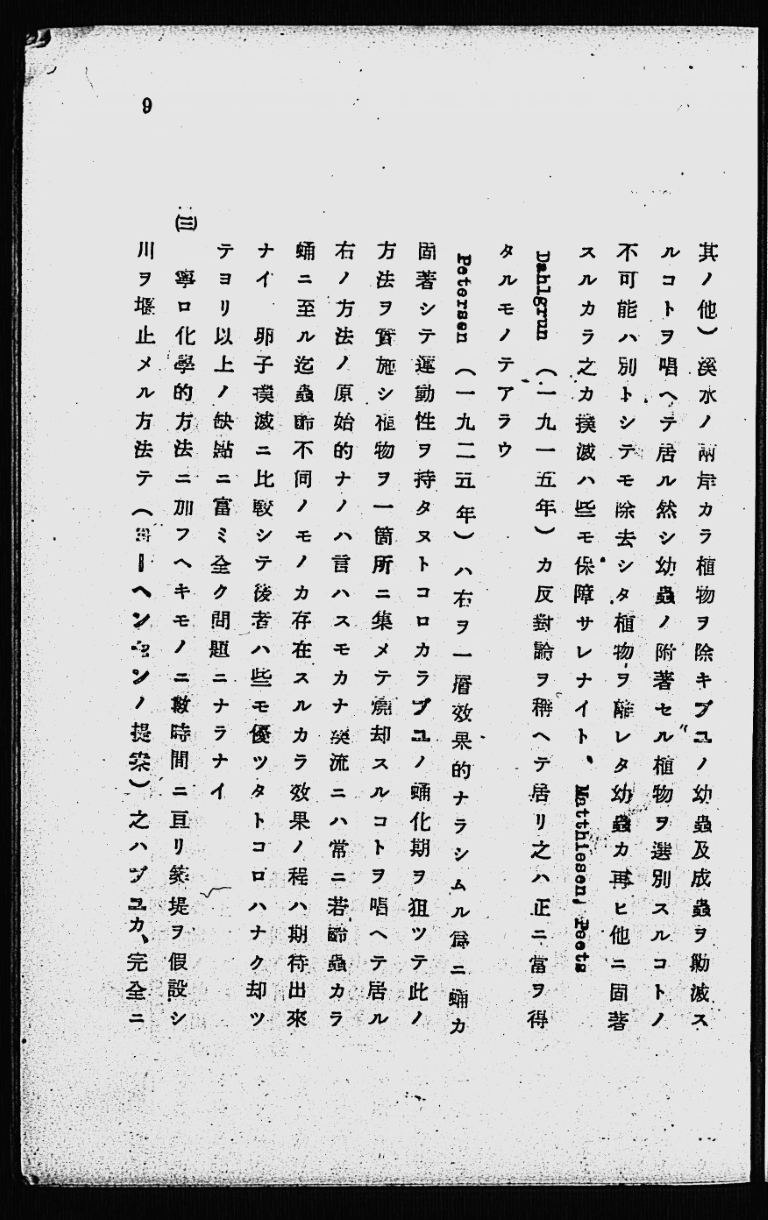 其ノ他)溪水ノ兩岸カラ植物ヲ除キブユノ幼蟲及成蟲ヲ勦滅ス
ルコトヲ唱ヘテ居ル然シ幼蟲ノ附著セル植物ヲ選別スルコトノ
不可能ハ別トシテモ除去シタ植物ヲ離レタ幼蟲カ再ヒ他ニ固著
スルカラ之カ撲滅ハ些モ保障サレナイト、Matthiesen, Peets
Dahlgrun(一九一五年)カ反對論ヲ稱ヘテ居リ之ハ正ニ當ヲ得
タルモノテアラウ
Petersen(一九二五年)ハ右ヲ一層效果的ナラシムル爲ニ蛹カ
固著シテ運動性ヲ持タヌトコロカラブユノ蛹化期ヲ狙ツテ此ノ
方法ヲ實施シ植物ヲ一箇所ニ集メテ燒却スルコトヲ唱ヘテ居ル
右ノ方法ノ原始的ナノハ言ハスモカナ溪流ニハ常ニ若齡蟲カラ
蛹ニ至ル迄蟲齡不同ノモノカ存在スルカラ效果ノ程ハ期待出來
ナイ 卵子撲滅ニ比較シテ後者ハ些モ優ツタトコロハナク却ツ
テヨリ以上ノ缺點ニ富ミ全ク問題ニナラナイ
㈢ 寧ロ化學的方法ニ加フヘキモノニ數時間ニ亘リ築堤ヲ假設シ
川ヲ堰止メル方法テ(ヘンノ提案)之ハブユカ、完全ニ
9